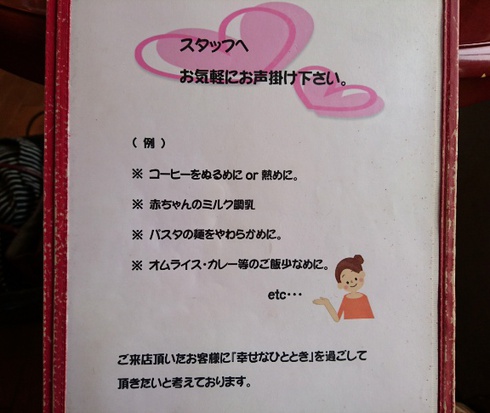 スタッフへ
お気軽にお声掛け下さい。
( 例 )
※ コーヒーをぬるめに or 熱めに。
※ 赤ちゃんのミルク調乳
※ パスタの麺をやわらかめに。
※ オムライス・カレー等のご飯少なめに。
etc・・・
ご来店頂いたお客様に「幸せなひととき」を過ごして
頂きたいと考えております。